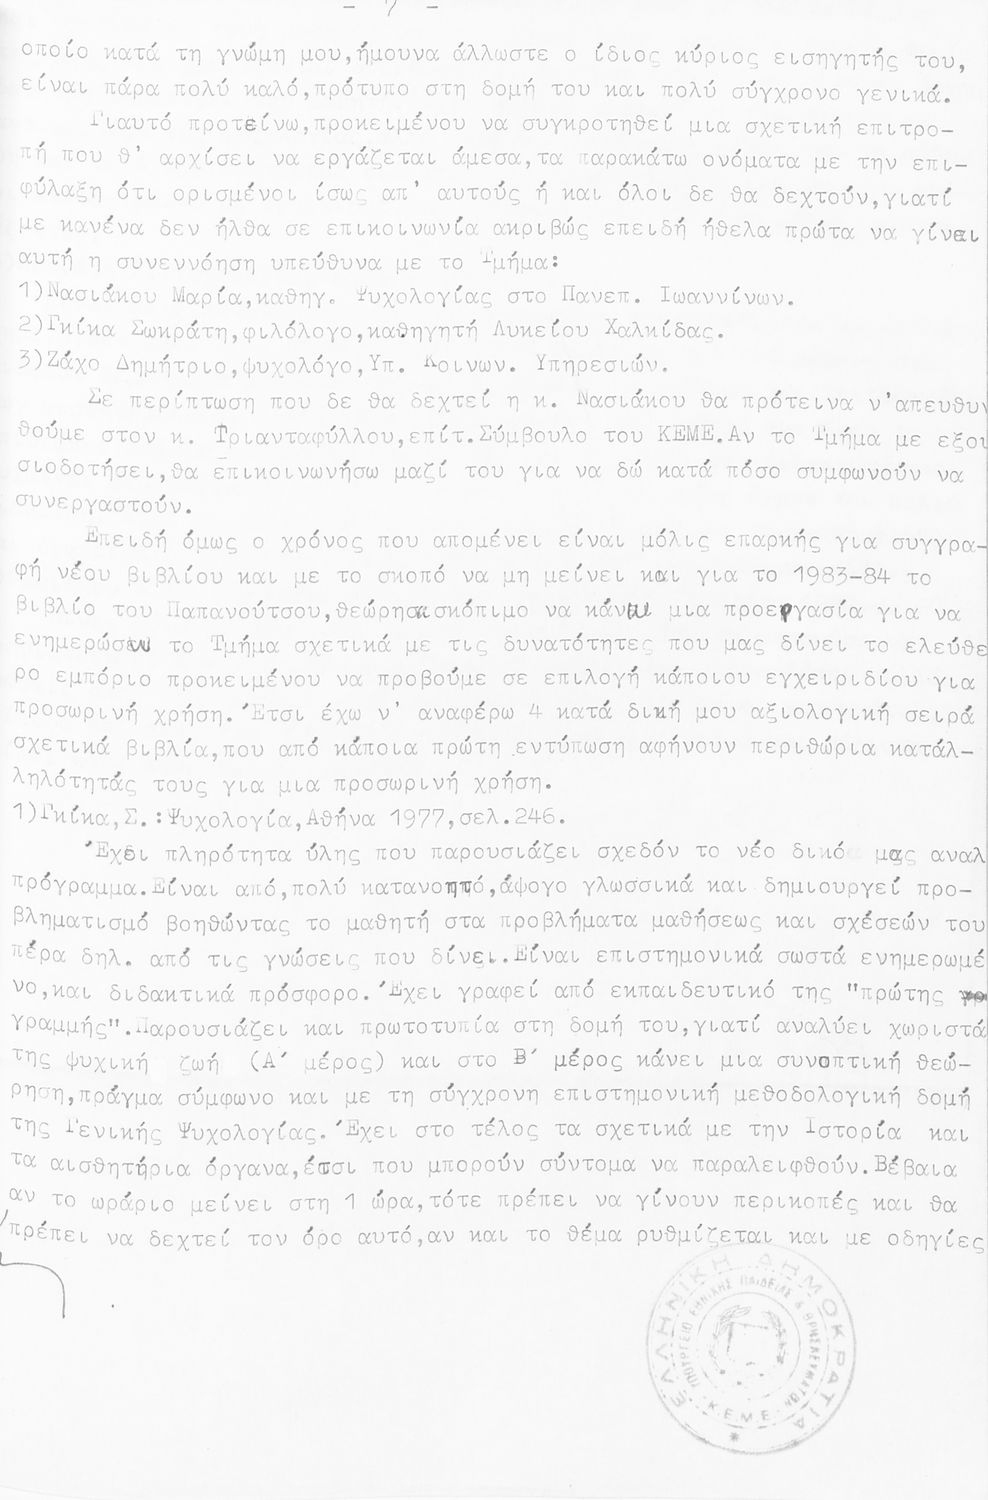 - 7 -
οποίο κατά τη γνώμη μου,ήμουνα άλλωστε ο ίδιος κύριος εισηγητής του,
είναι πάρα πολύ καλό,πρότυπο στη δομή του και πολύ σύγχρονο γενικά.
Γιαυτό προτείνω,προκειμένου να συγκροτηθεί μια σχετική επιτρο-
πή που θ' αρχίσει να εργάζεται άμεσα,τα παρακάτω ονόματα με την επι-
φύλαξη ότι ορισμένοι ίσως απ' αυτούς ή και όλοι δε θα δεχτούν,γιατί
με κανένα δεν ήλθα σε επικοινωνία ακριβώς επειδή ήθελα πρώτα να γίνει
αυτή η συνεννόηση υπεύθυνα με το Τμήμα:
1)Νασιάκου Μαρία,καθηγ. Ψυχολογίας στο Πανεπ. Ιωαννίνων.
2)Γκίκα Σωκράτη,φιλόλογο,καθηγητή Λυκείου Χαλκίδας.
3)Ζάχο Δημήτριο,ψυχολόγο,Υπ. Κοινων. Υπηρεσιών.
Σε περίπτωση που δε θα δεχτεί η κ. Νασιάκου θα πρότεινα ν'απευθυν
θούμε στον κ. Τριανταφύλλου,επίτ.Σύμβουλο του ΚΕΜΕ.Αν το Τμήμα με εξου
σιοδοτήσει,θα επικοινωνήσω μαζί του για να δώ κατά πόσο συμφωνούν να
συνεργαστούν.
Επειδή όμως ο χρόνος που απομένει είναι μόλις επαρκής για συγγρα-
φή νέου βιβλίου και με το σκοπό να μη μείνει και για το 1983-84 το
βιβλίο του Παπανούτσου,θεώρησα σκόπιμο να κάνω μια προεργασία για να
ενημερώσω το Τμήμα σχετικά με τις δυνατότητες που μας δίνει το ελεύθε
ρο εμπόριο προκειμένου να προβούμε σε επιλογή κάποιου εγχειριδίου για
προσωρινή χρήση.Έτσι έχω ν' αναφέρω 4 κατά δική μου αξιολογική σειρά
σχετικά βιβλία,που από κάποια πρώτη εντύπωση αφήνουν περιθώρια κατάλ-
ληλότητάς τους για μια προσωρινή χρήση.
1)Γκίκα,Σ.:Ψυχολογία,Αθήνα 1977,σελ.246.
Έχει πληρότητα ύλης που παρουσιάζει σχεδόν το νέο δικό μας αναλ
πρόγραμμα.Είναι από,πολύ κατανοητό,άψογο γλωσσικά και δημιουργεί προ-
βληματισμό βοηθώντας το μαθητή στα προβλήματα μαθήσεως και σχέσεών του
πέρα δηλ. από τις γνώσεις που δίνει.Είναι επιστημονικά σωστά ενημερωμέ
νο,και διδακτικά πρόσφορο.Έχει γραφεί από εκπαιδευτικό της "πρώτης
γραμμής".Παρουσιάζει και πρωτοτυπία στη δομή του,γιατί αναλύει χωριστά
της ψυχική ζωή (Α' μέρος) και στο Β' μέρος κάνει μια συνοπτική θεώ-
ρηση,πράγμα σύμφωνο και με τη σύγχρονη επιστημονική μεθοδολογική δομή
της Γενικής Ψυχολογίας.Έχει στο τέλος τα σχετικά με την Ιστορία και
τα αισθητήρια όργανα,έτσι που μπορούν σύντομα να παραλειφθούν.Βέβαια
αν το ωράριο μείνει στη 1 ώρα,τότε πρέπει να γίνουν περικοπές και θα
πρέπει να δεχτεί τον όρο αυτό,αν και το θέμα ρυθμίζεται και με οδηγίες
ΕΛΛΗΝΙΚΗ ΔΗΜΟΚΡΑΤΙΑ
ΥΠΟΥΡΓΕΙΟ ΕΘΝΙΚΗΣ ΠΑΙΔΕΙΑΣ & ΘΡΗΣΚΕΥΜΑΤΩΝ
Κ.Ε.Μ.Ε.